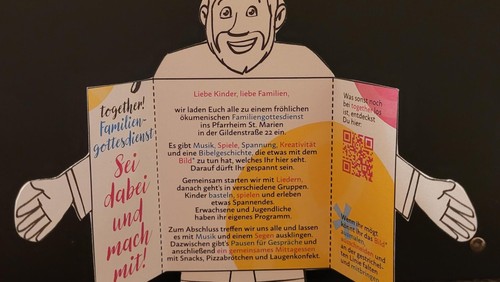 together!
Familien-
gottesdienst
Sei
dabei
und
mach
mit!
Liebe Kinder, liebe Familien,
wir laden Euch alle zu einem fröhlichen
ökumenischen Familiengottesdienst
ins Pfarrheim St. Marien
in der Gildenstraße 22 ein.
Es gibt Musik, Spiele, Spannung, Kreativität
und eine Bibelgeschichte, die etwas mit dem
Bild* zu tun hat, welches Ihr hier seht.
Darauf dürft Ihr gespannt sein.
Gemeinsam starten wir mit Liedern,
danach geht's in verschiedene Gruppen.
Kinder basteln, spielen und erleben
etwas Spannendes.
Erwachsene und Jugendliche
haben ihr eigenes Programm.
Zum Abschluss treffen wir uns alle und lassen
es mit Musik und einem Segen ausklingen.
Dazwischen gibt's Pausen für Gespräche und
anschließend ein gemeinsames Mittagessen
mit Snacks, Pizzabrötchen und Laugenkonfekt.
Was sonst noch
bei together los
ist, entdeckst
Du hier:
Wenn ihr mögt
könnt ihr das Bild*
an der gestrichel-
ten Linie falten
und mitbringen